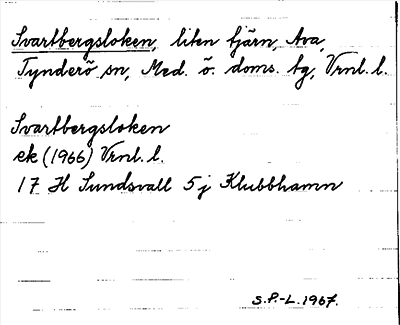 Svartbergsloken, liten tjärn, Ava,
Tynderö sn, Med. ö. doms. tg, Vrnl. l.
Svartbergsloken
ek (1966) Vrnl. l.
17 H Sundsvall 5 j Klubbhamn
S.P.-L. 1967.